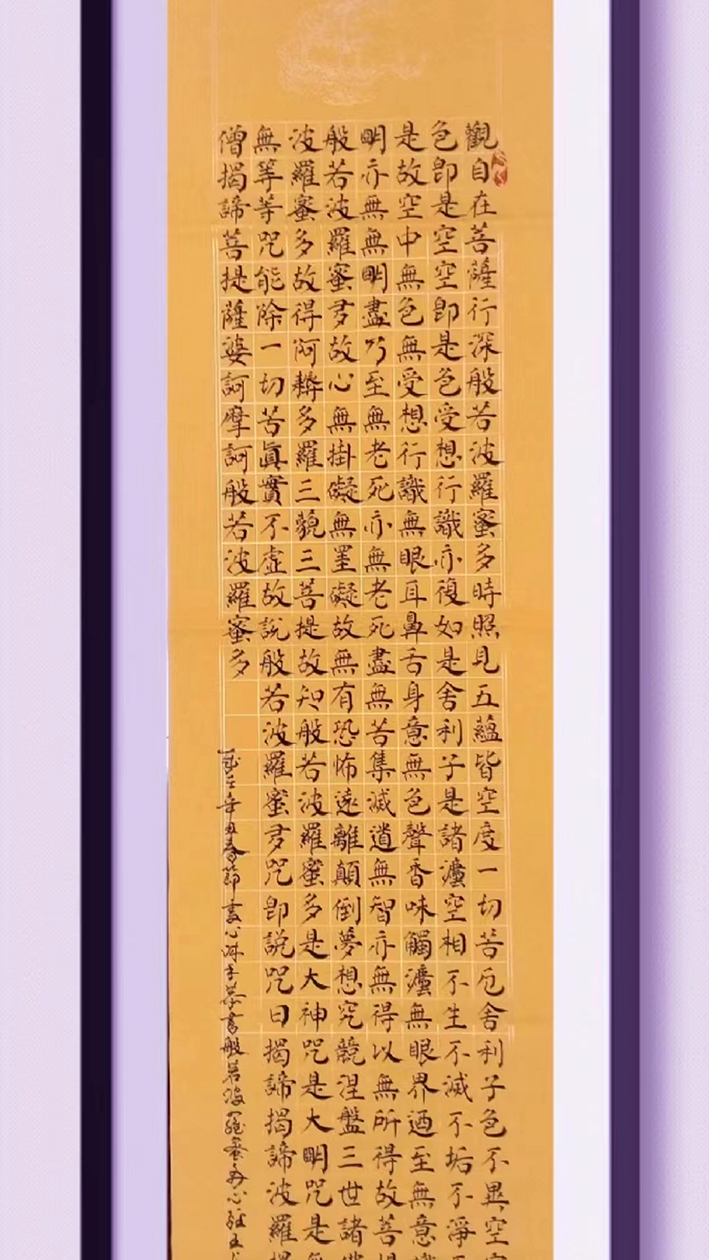 觀自在菩薩行深般若波羅蜜多時照見五蘊皆空度一切苦厄舍利子色不異空
色即是空空即是色受想行識亦復如是舍利子是諸灋空相不生不滅不垢不淨
是故空中無色無受想行識無眼耳鼻舌身意無色聲香味觸灋無眼界迺至無意
明亦無無明盡乃至無老死亦無老死盡無苦集滅道無智亦無得以無所得故菩
般若波羅蜜多故心無掛礙無罣礙故無有恐怖遠離顛倒夢想究競涅盤三世諸
波羅蜜多故得阿耨多羅三藐三菩提故知般若波羅蜜多是大神咒是大明咒是
無等等咒能除一切苦眞實不虛故說般若波羅蜜多咒即說咒曰揭諦揭諦波羅
僧揭諦菩提薩婆訶摩訶般若波羅蜜多
歲在辛丑春節書恭書般若波羅蜜多心經